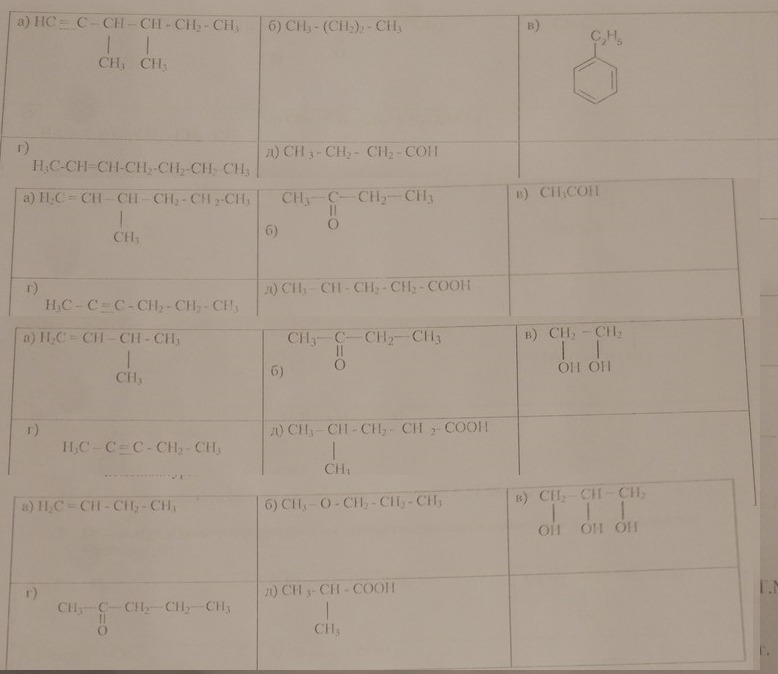 а) HC ≡ C – CH – CH - CH₂ - CH₃
CH₃ CH₃
б) CH₃ - (CH₂)₂ - CH₃
в)
C₂H₅
г)
H₃C-CH=CH-CH₂-CH₂-CH₂-CH₃
д) CH ₃ - CH₂ - CH₂ - COH
а) H₂C = CH – CH – CH₂ - CH ₂-CH₃
CH₃
CH₃—C—CH₂—CH₃
O
б)
в) CH₃COH
г)
H₃C – C ≡ C - CH₂ - CH₂ - CH₃
д) CH₃ – CH - CH₂ - CH₂ - COOH
а) H₂C = CH – CH - CH₃
CH₃
CH₃—C—CH₂—CH₃
O
б)
в) CH₂ – CH₂
OH OH
г)
H₃C – C ≡ C - CH₂ - CH₃
д) CH₃ – CH - CH₂ - CH ₂- COOH
CH₃
а) H₂C = CH - CH₂ - CH₃
б) CH₃ – O - CH₂ - CH₂ - CH₃
в) CH₂ – CH – CH₂
OH OH OH
г)
CH₃—C—CH₂—CH₂—CH₃
O
д) CH ₃- CH - COOH
CH₃